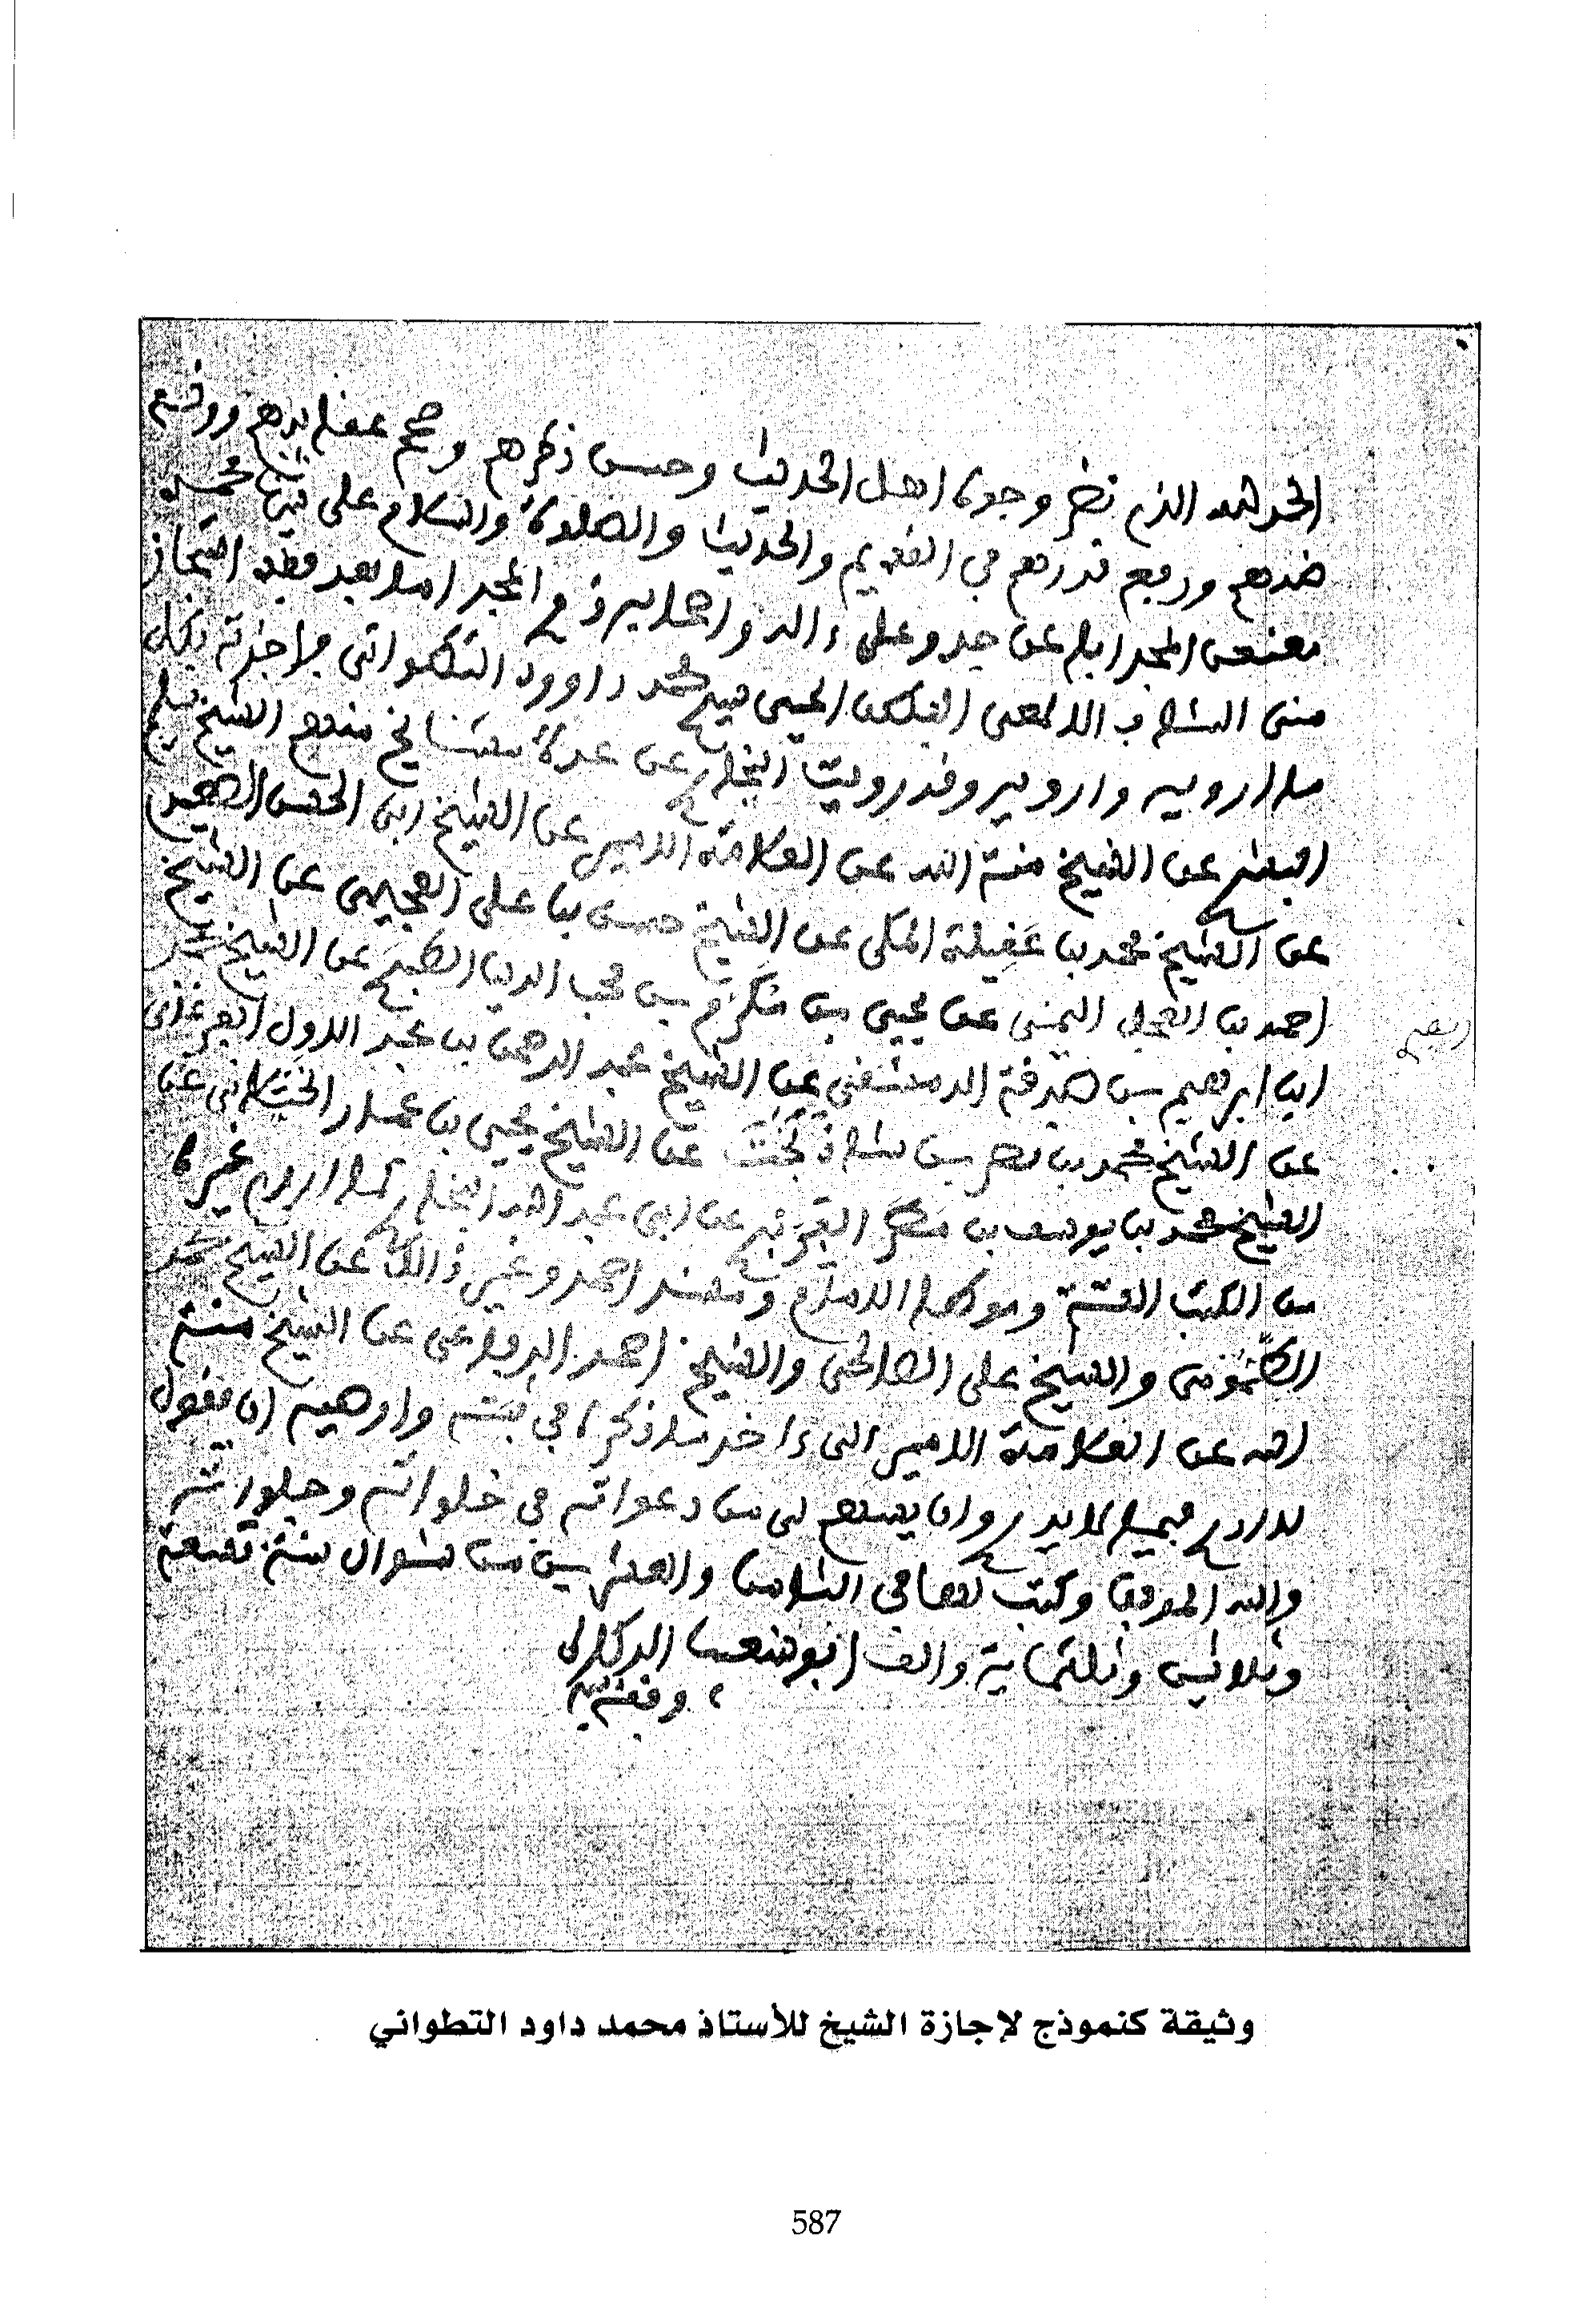 الحمد لله الذى نضر وجوه اهل الحديث وحسن ذكرهم وصحح عقايدهم ووضع
ضدهم ورفع قدرهم في القديم والحديث والصلاة والسلام على نبينا محمد
معنعن المجد ابا عن جد وعلى ءاله واصحابه ذوي المجد اما بعد فقد استجاز
منى الشاب الالمعى الفطن المحبى سيد محمد داوود التطوانى فاجزته بكل
ما ارويه وقد رويت البخارى عن عدة مشائخ منهم الشيخ سليم
البشرى عن الشيخ منة الله عن العلامة الامير عن الشيخ ابى الحسن الصعيدى
عن الشيخ محمد بن عقيلة المكى عن الشيخ حسن بن على العجيمى عن الشيخ
احمد بن العجل اليمنى عن يحيى بن مكرم بن محب الدين الطبرى عن الشيخ محمد
ابن ابرهيم بن صدقة الدمشقى عن الشيخ عبد الرحمن بن عبد الاول الفرغانى
عن الشيخ محمد بن بن شاذ بخت عن الشيخ يحيى بن عمار الختلانى عن
الشيخ محمد بن يوسف بن مطر الفربرى عن ابى عبد الله البخارى كما اروى غيره
من الكتب الستة وموطا الامام ومسند احمد وغير ذالك عن الشيخ محمد
والشيخ على الصالحى والشيخ احمد الرفاعى عن الشيخ منة
الله عن العلامة الامير الى ءاخر ما ذكره في ثبته واوصيه ان يقول
لا ادرى فيما لا يدرى وان لى من دعواته في خلواته وجلواته
والله الموفق وكتب فى الثامن والعشرين من شوال سنة تسعة
وثلاثين وثلثماية والف ابو شعيب الدكالى
وفقه
وثيقة كنموذج لإجازة الشيخ للأستاذ محمد داود التطواني
587